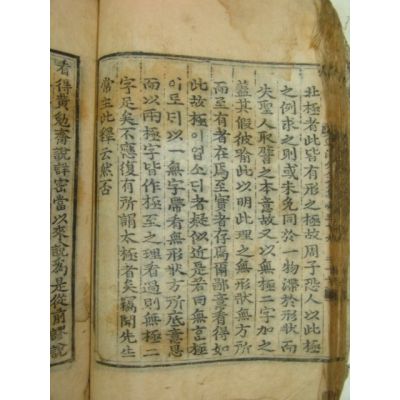 北極者此皆有形之極故周子恐人以此極
之例求之則或未免同於一物滯於形狀而
失聖人取譬之本意故又以無極二字加之
蓋其假彼喩此以明此理之無形狀無方所
而至有者在焉至實者存焉爾鄙意看得如
此故極이업소ᄃᆡ者疑似近是若曰無言極
이로ᄃᆡ以一無字帶看無形狀方所底意思
而以兩極字皆作極至之理看過則無極二
字足矣不應復有所謂太極者矣竊聞先生
常主此繹云然否
看得黃勉齋說詳密當以來說爲是從前謬說